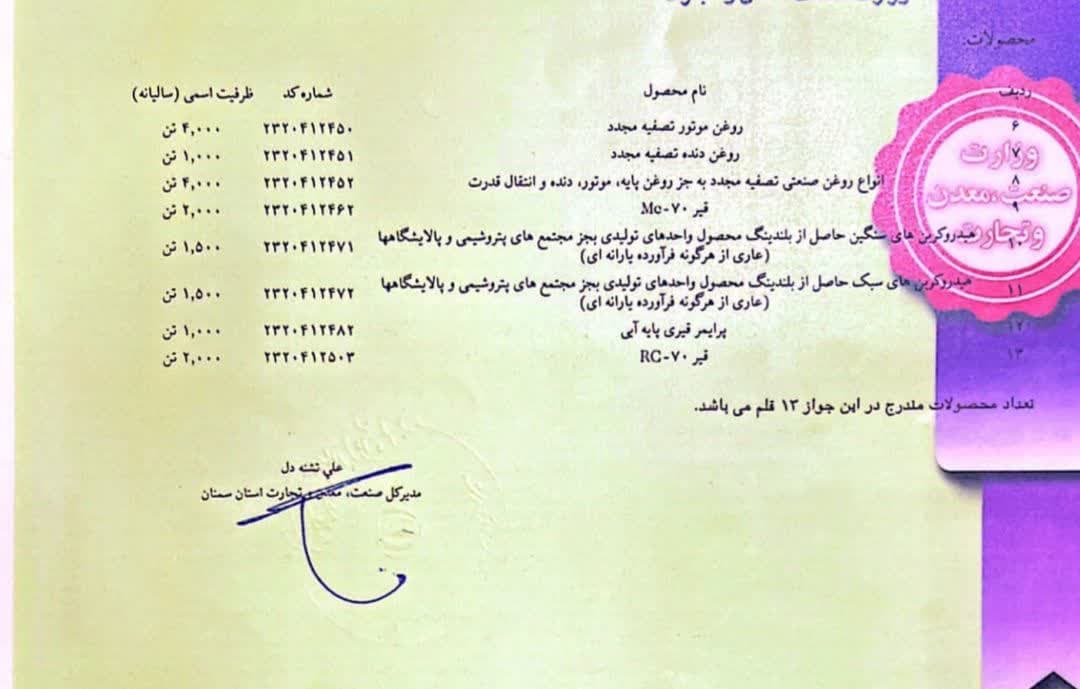 محصولات:
ردیف نام محصول شماره کد ظرفیت اسمی (سالیانه)
۶ روغن موتور تصفیه مجدد ۲۳۲۰۴۱۲۴۵۰ ۴,۰۰۰ تن
۷ روغن دنده تصفیه مجدد ۲۳۲۰۴۱۲۴۵۱ ۱,۰۰۰ تن
۸ انواع روغن صنعتی تصفیه مجدد به جز روغن پایه، موتور، دنده و انتقال قدرت ۲۳۲۰۴۱۲۴۵۲ ۴,۰۰۰ تن
۹ قیر Mc-۷۰ ۲۳۲۰۴۱۲۴۶۲ ۲,۰۰۰ تن
۱۰ هیدروکربن های سنگین حاصل از بلندینگ محصول واحدهای تولیدی بجز مجتمع های پتروشیمی و پالایشگاهها ۲۳۲۰۴۱۲۴۷۱ ۱,۵۰۰ تن
(عاری از هرگونه فرآورده یارانه ای)
۱۱ هیدروکربن های سبک حاصل از بلندینگ محصول واحدهای تولیدی بجز مجتمع های پتروشیمی و پالایشگاهها ۲۳۲۰۴۱۲۴۷۲ ۱,۵۰۰ تن
(عاری از هرگونه فرآورده یارانه ای)
۱۲ پرایمر قیری پایه آبی ۲۳۲۰۴۱۲۴۸۲ ۱,۰۰۰ تن
۱۳ قیر RC-۷۰ ۲۳۲۰۴۱۲۵۰۳ ۲,۰۰۰ تن
تعداد محصولات مندرج در این جواز ۱۳ قلم می باشد.
وزارت
صنعت، معدن
و تجارت
علی تشنه دل
مدیرکل صنعت، معدن و تجارت استان سمنان